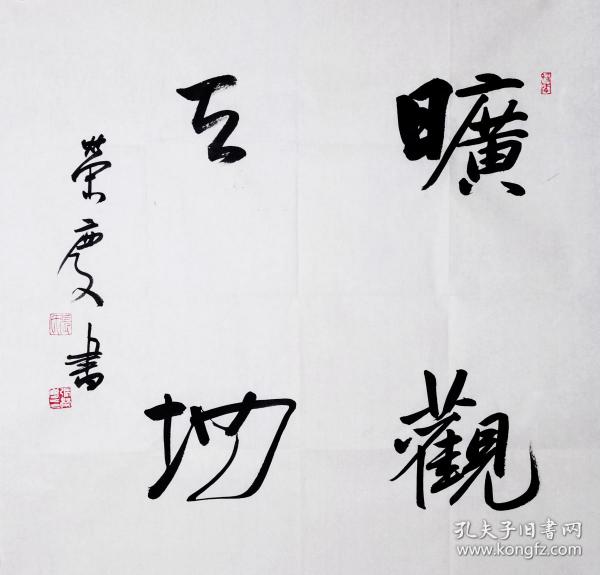 曠觀
天地
榮慶書
孔夫子旧书网
www.kongfz.com